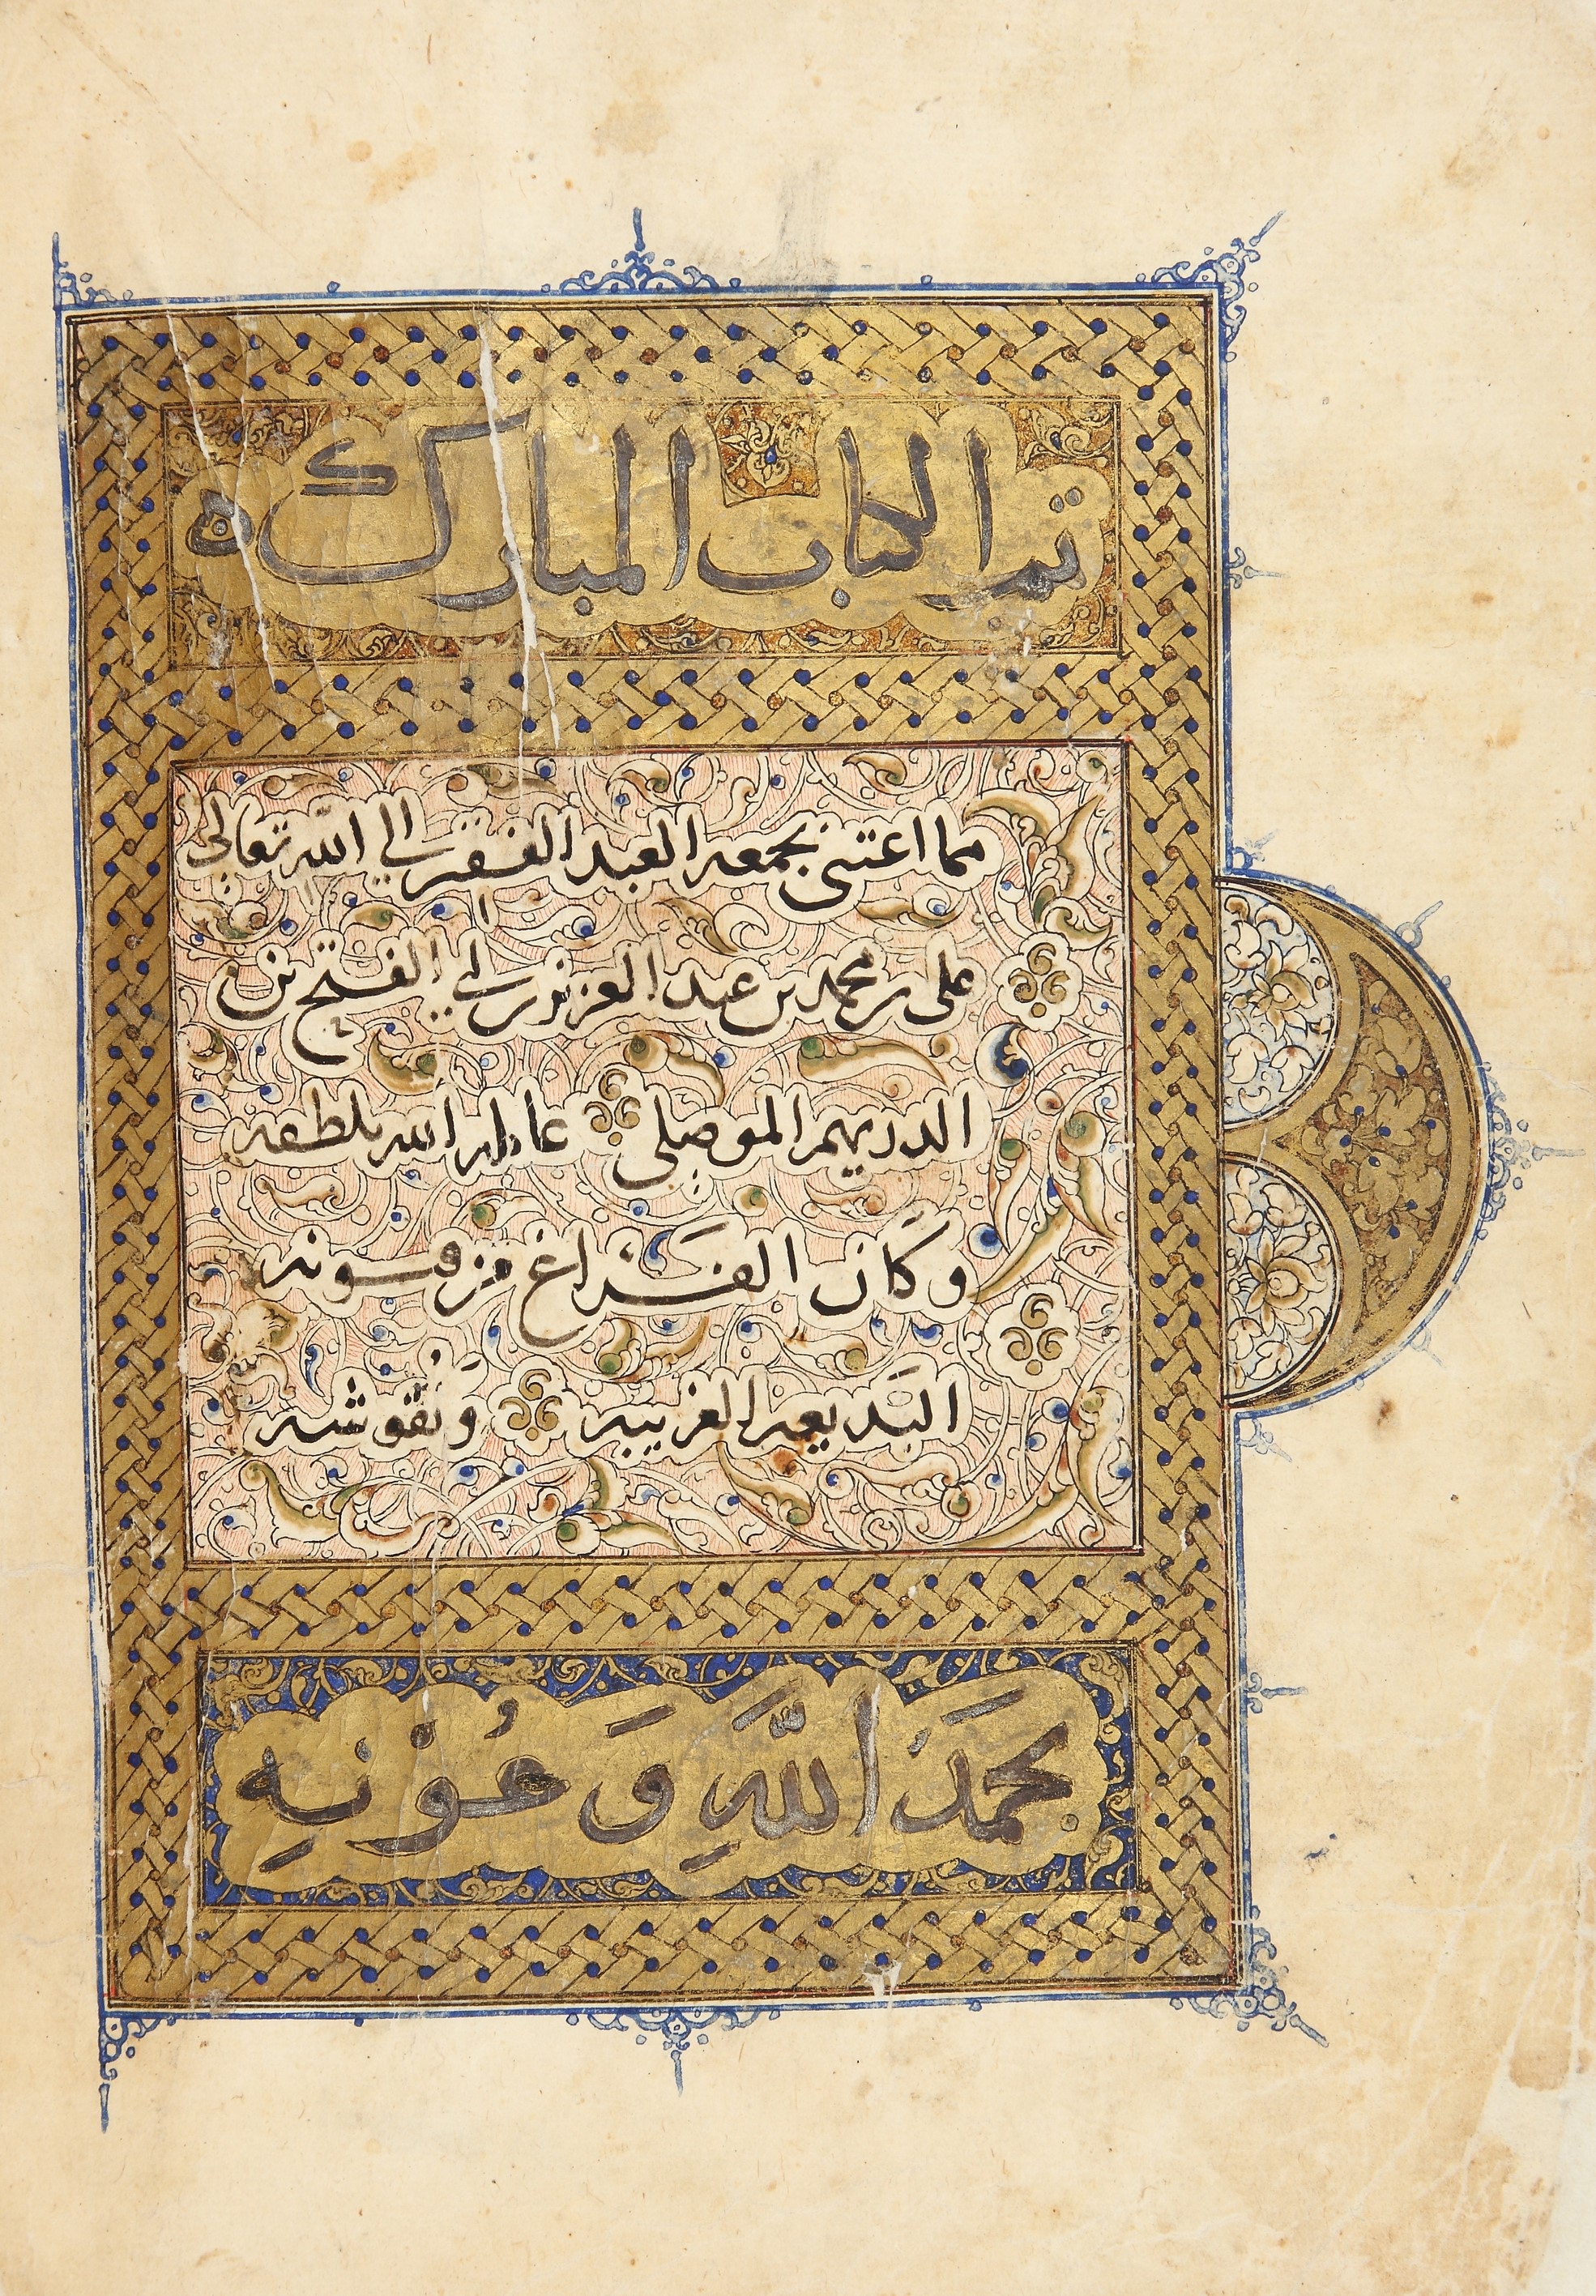 تم الكتاب المبارك
مما اعتنى بجمعه العبد الفقير الى الله تعالى
على بن محمد بن عبد العزيز بن ابي الفتح بن
الدريهم الموصلي عامله الله بلطفه
وكان الفراغ من فنونه
البديعه الغريبه ونقوشه
بحمد الله وعونه